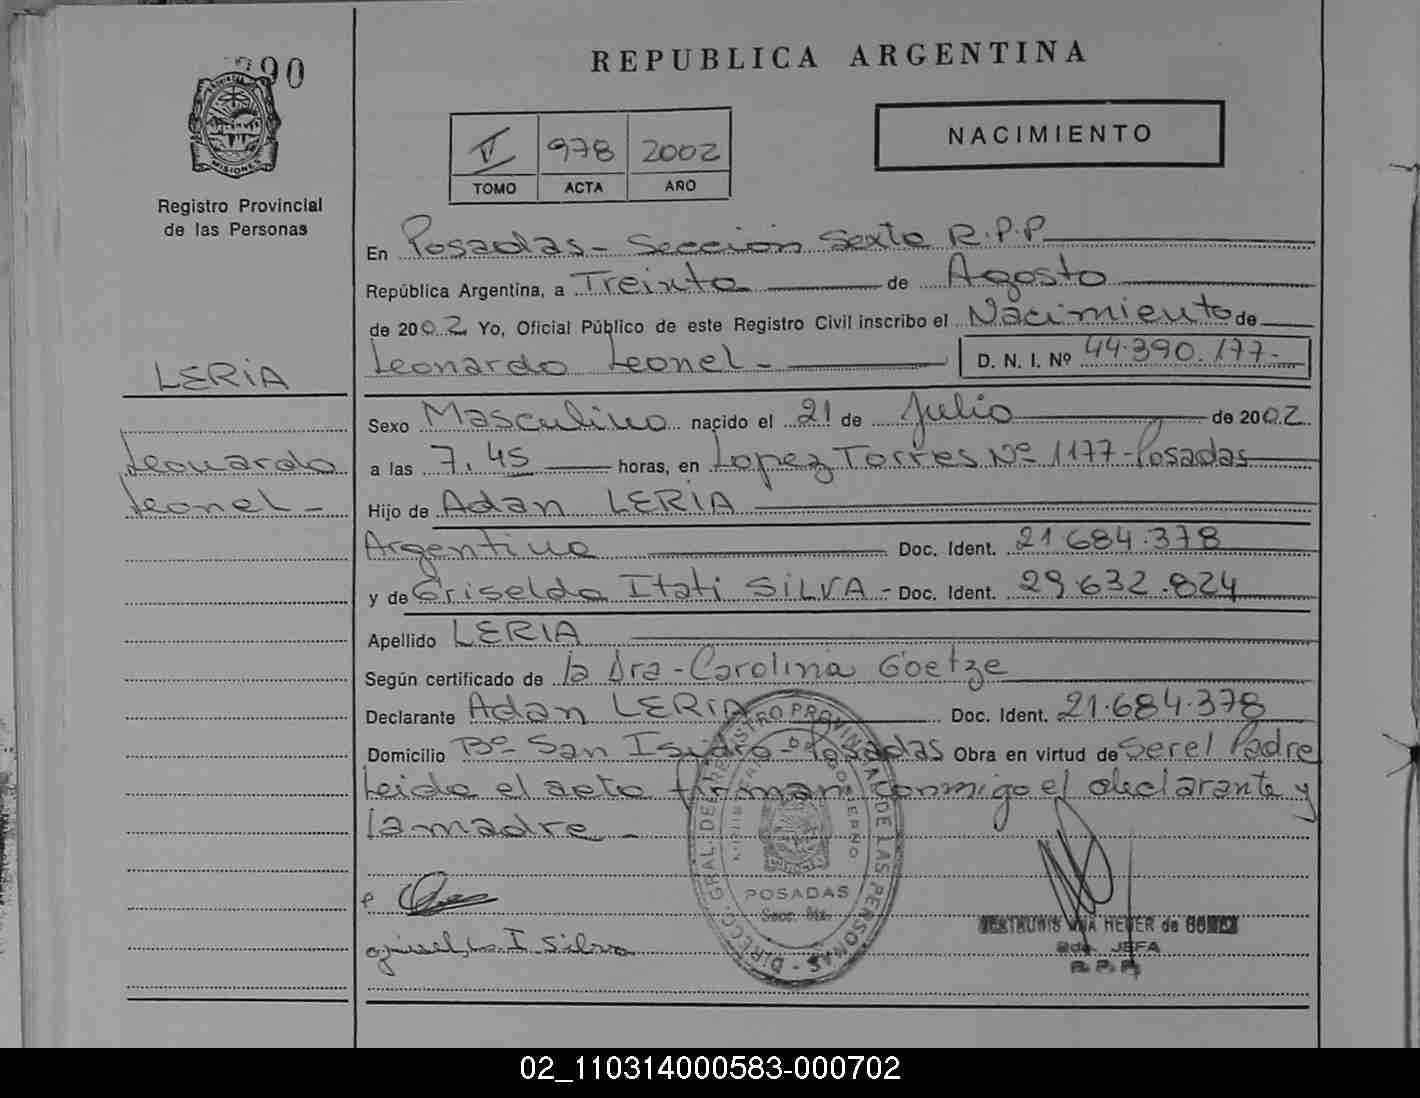 90
MISIONES
Registro Provincial
de las Personas
REPUBLICA ARGENTINA
V 978 2002
TOMO ACTA AÑO
NACIMIENTO
En Posadas - Sección Sexta R.P.P
República Argentina, a Treinta de Agosto
de 2002 Yo, Oficial Público de este Registro Civil inscribo el Nacimiento de
Leonardo Leonel - D. N. I. Nº 44.390.177-
LERIA
Leonardo
Leonel -
Sexo Masculino nacido el 21 de Julio de 2002
a las 7,45 horas, en Lopez Torres Nº 1177-Posadas
Hijo de Adan LERIA
Argentino Doc. Ident. 21684.378
y de Griselda Itati SILVA - Doc. Ident. 29.632.824
Apellido LERIA
Según certificado de la Dra - Carolina Goetze
Declarante Adan LERIA Doc. Ident. 21.684.378
Domicilio Bº San Isidro - Posadas Obra en virtud de Ser el Padre
Leida el acta firman conmigo el declarante y
la madre -
DIRECC. GRAL. DEL REGISTRO PROVINCIAL DE LAS PERSONAS
MINISTERIO DE GOBIERNO
POSADAS
Secc.
I Silva
HEUER de
JEFA
R.P.P.
02_110314000583-000702